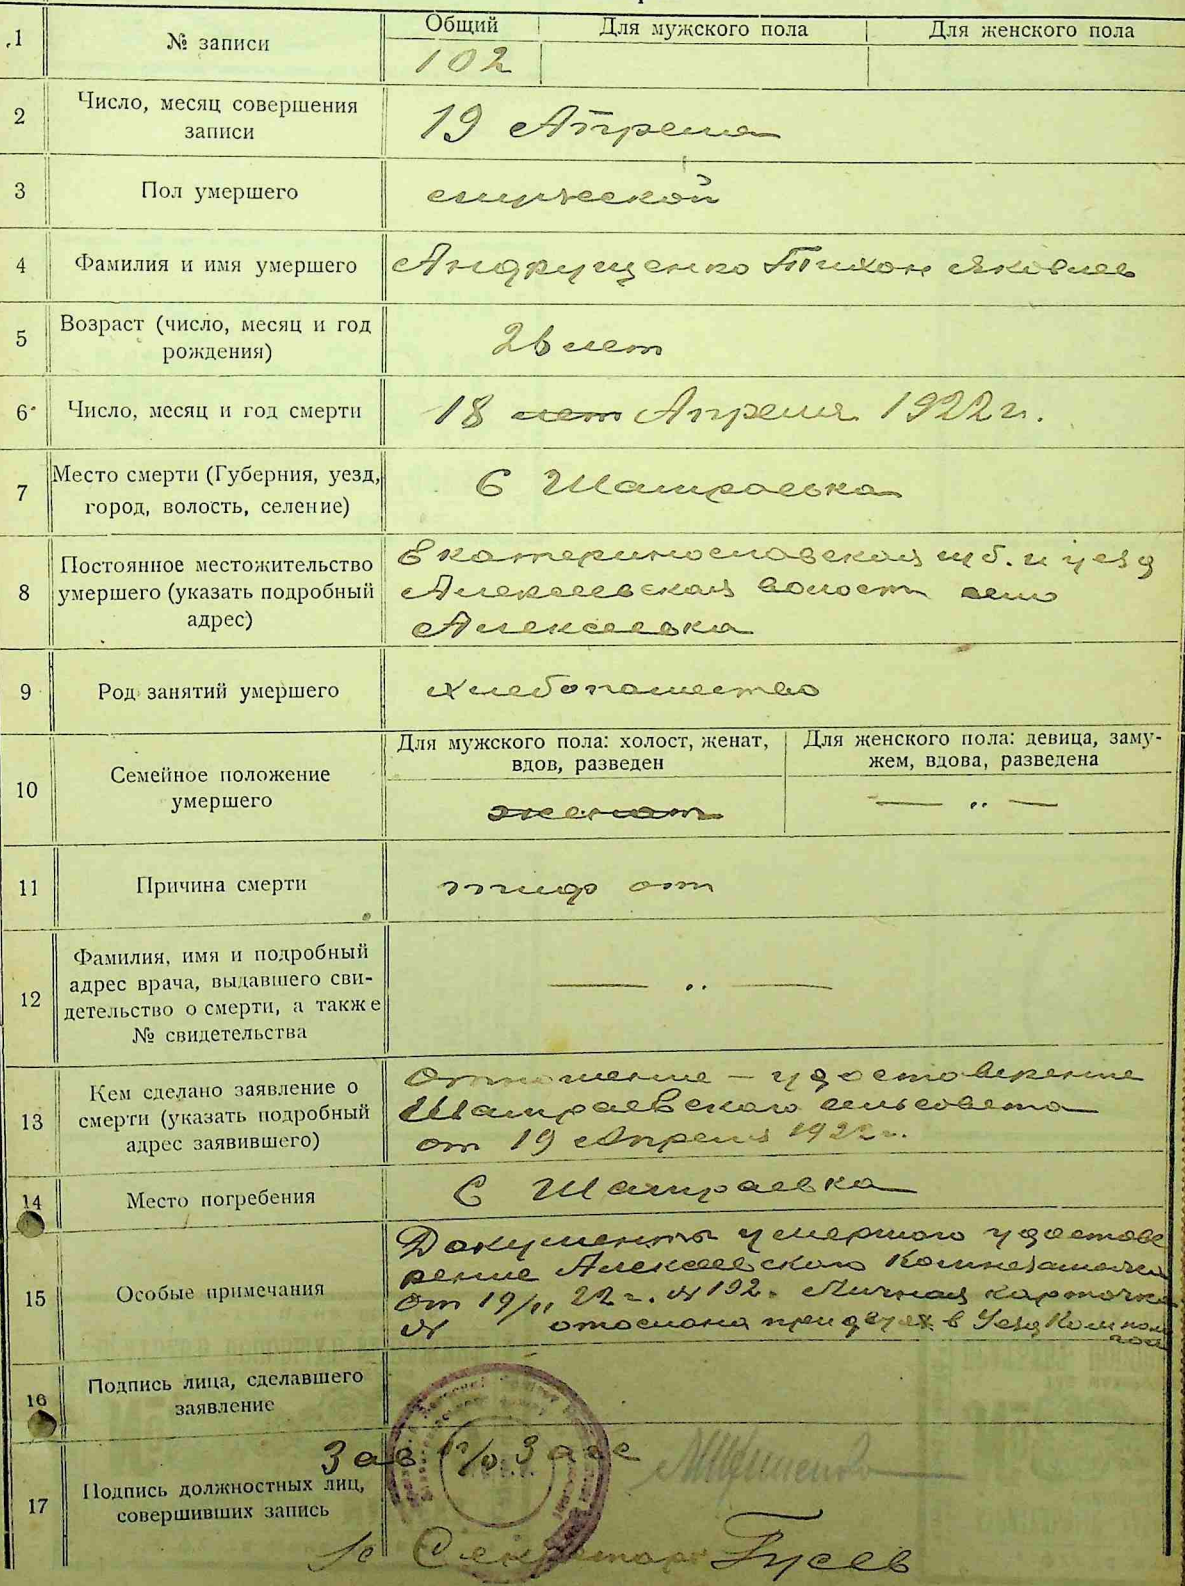 1 № записи Общий Для мужского пола Для женского пола
102
2 Число, месяц совершения
записи
19 Апреля
3 Пол умершего мужеской
4 Фамилия и имя умершего Андрущенко Тихон Яковлев
5 Возраст (число, месяц и год
рождения)
26 лет
6 Число, месяц и год смерти 18 лет Апреля 1922 г.
7 Место смерти (Губерния, уезд,
город, волость, селение)
С Шамраевка
8 Постоянное местожительство
умершего (указать подробный
адрес)
Екатеринославская губ. и уезд
Алексеевская волость село
Алексеевка
9 Род занятий умершего хлебопашество
10 Семейное положение
умершего
Для мужского пола: холост, женат,
вдов, разведен
Для женского пола: девица, заму-
жем, вдова, разведена
женат — „ —
11 Причина смерти тиф от
12 Фамилия, имя и подробный
адрес врача, выдавшего сви-
детельство о смерти, а также
№ свидетельства
— „ —
13 Кем сделано заявление о
смерти (указать подробный
адрес заявившего)
Отношение — удостоверение
Шамраевского сельсовета
от 19 Апреля 1922 г.
14 Место погребения С Шамраевка
15 Особые примечания
Документы умершого удостове
рение Алексеевского Комнезаможа
от 19/II 22 г. № 192. Личная карточка
№ отослана при в УездКом
16 Подпись лица, сделавшего
заявление
17 Подпись должностных лиц,
совершивших запись
Зав п/о Загс
Секретарь Гусев